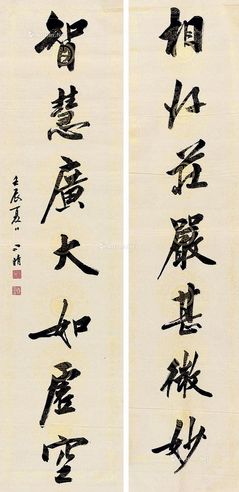 相好莊嚴甚微妙
智慧廣大如虛空
壬辰夏日